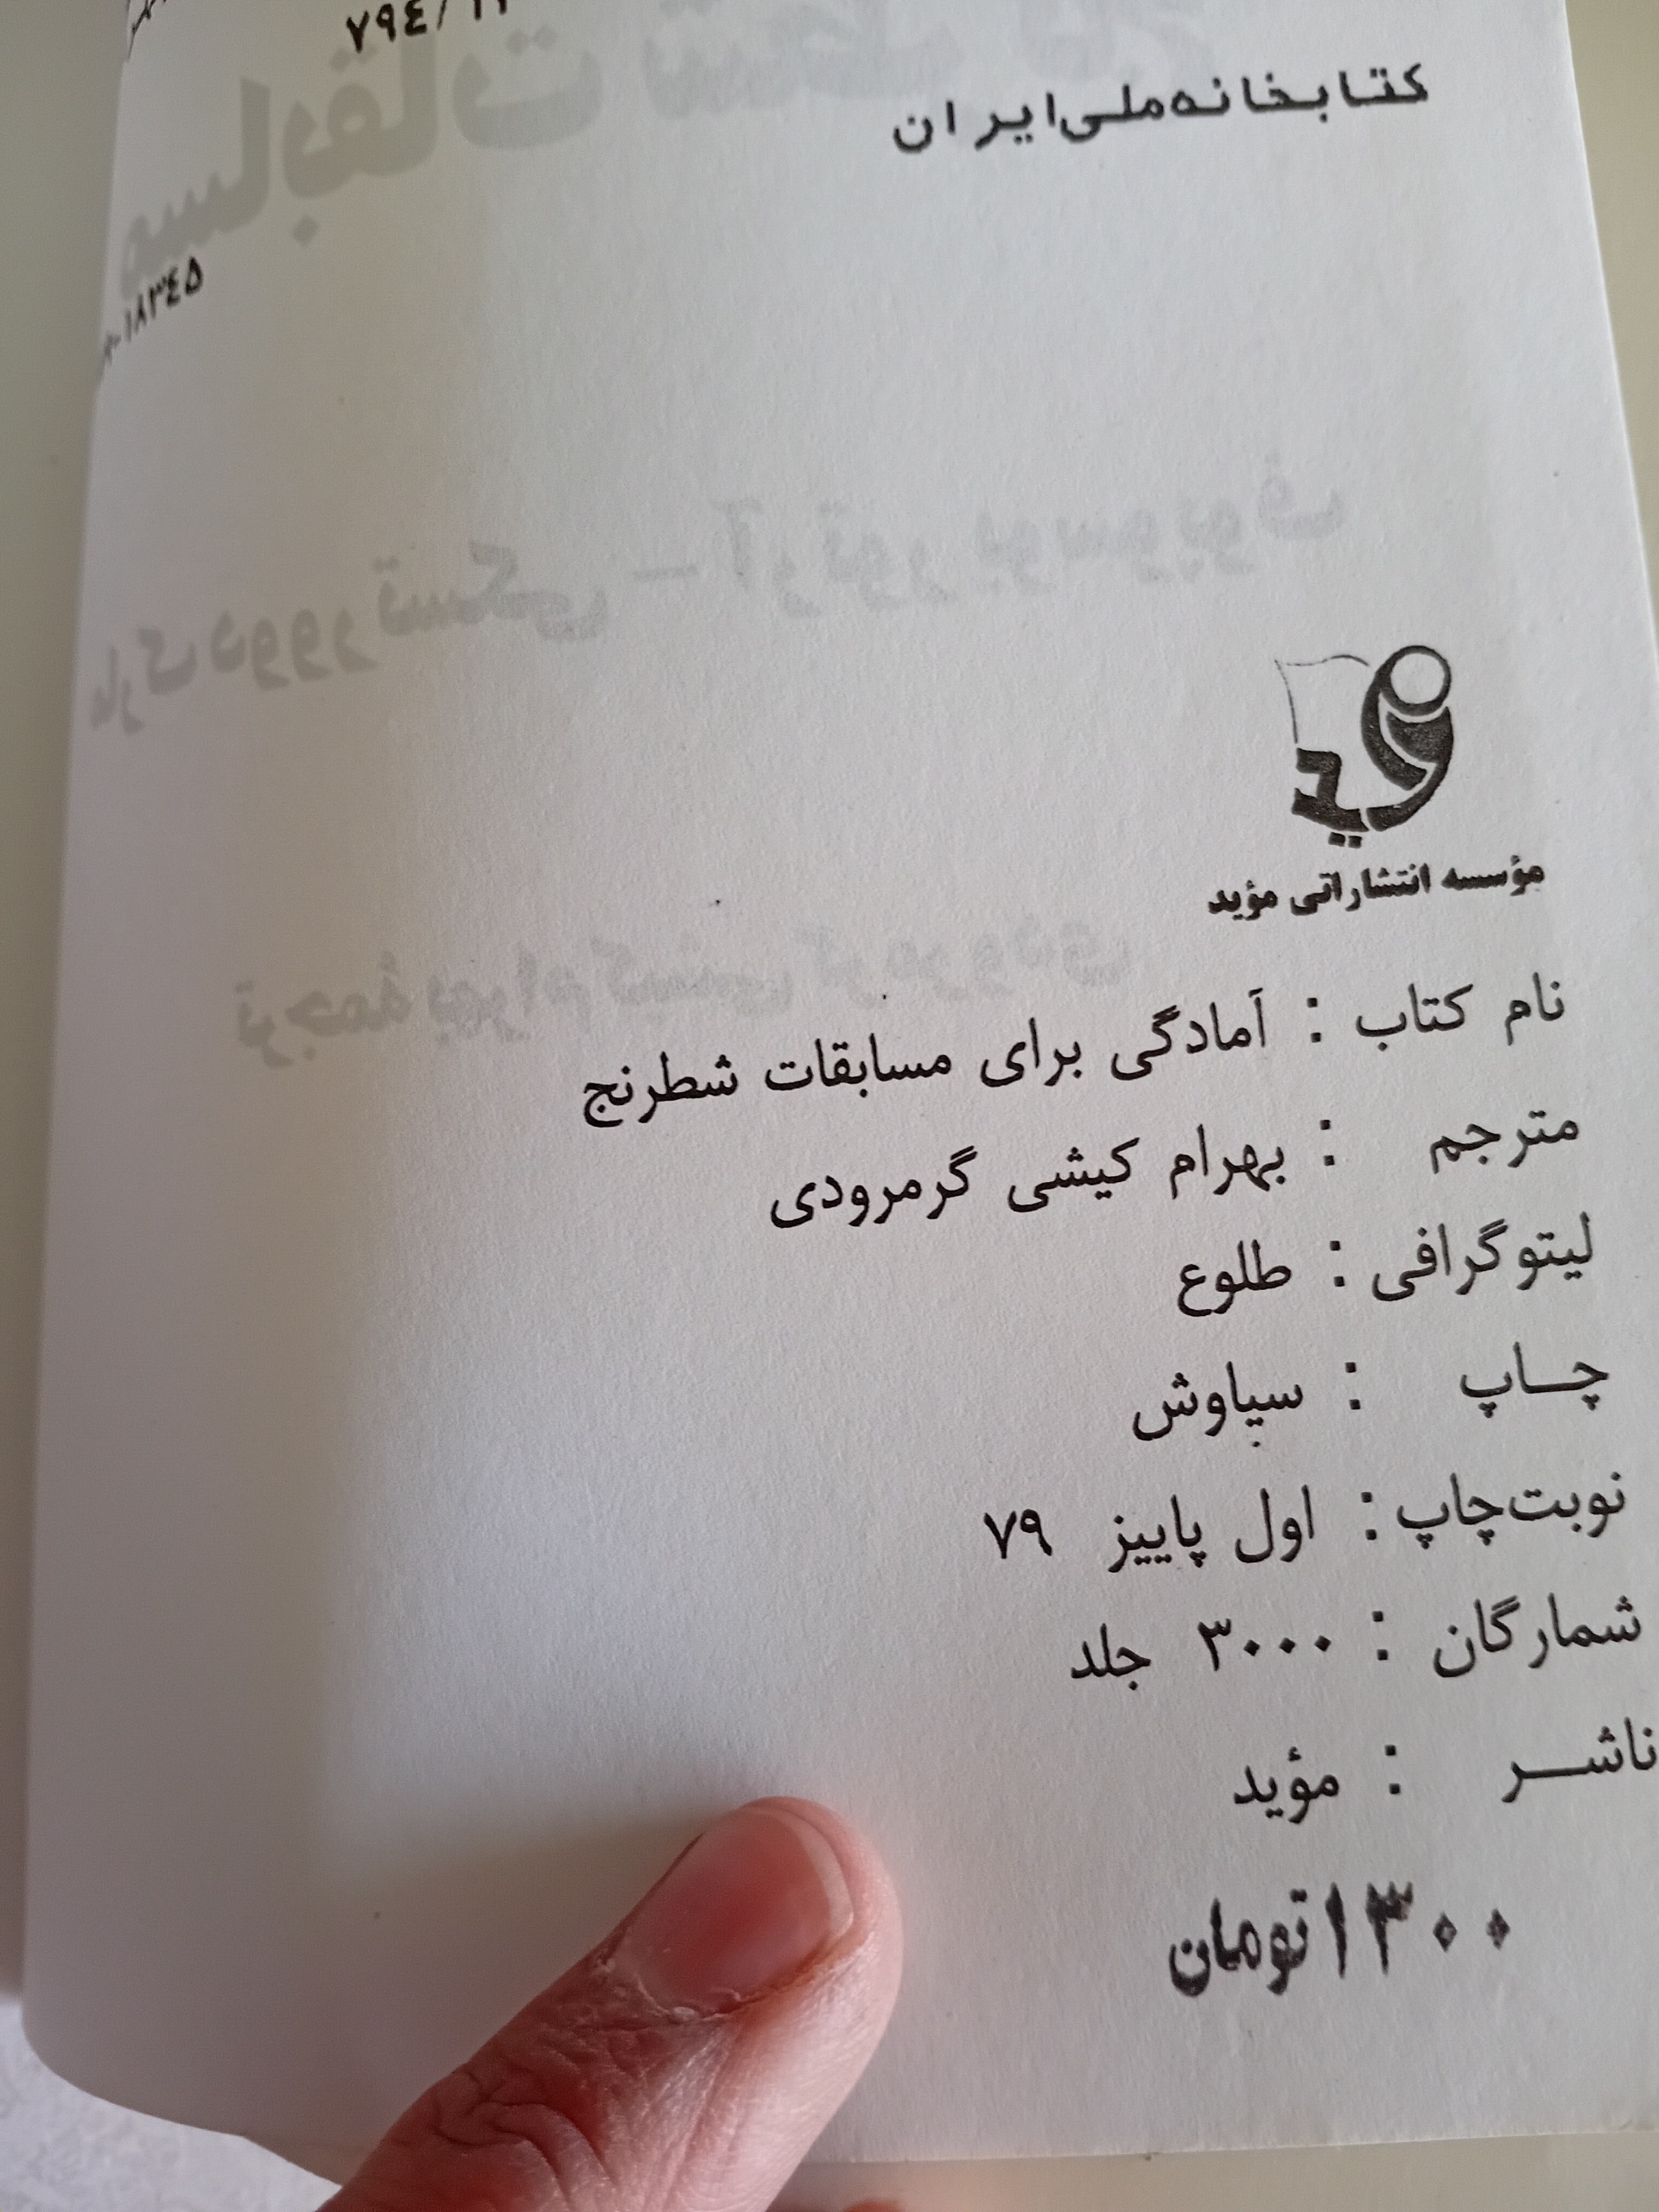 ۷۹٤/
کتابخانه ملی ایران
۱۸۳٤۵
مؤسسه انتشاراتی مؤید
نام کتاب : آمادگی برای مسابقات شطرنج
مترجم : بهرام کیشی گرمرودی
لیتوگرافی : طلوع
چـاپ : سیاوش
نوبت‌چاپ : اول پاییز ۷۹
شمارگان : ۳۰۰۰ جلد
ناشـر : مؤید
۱۳۰۰ تومان